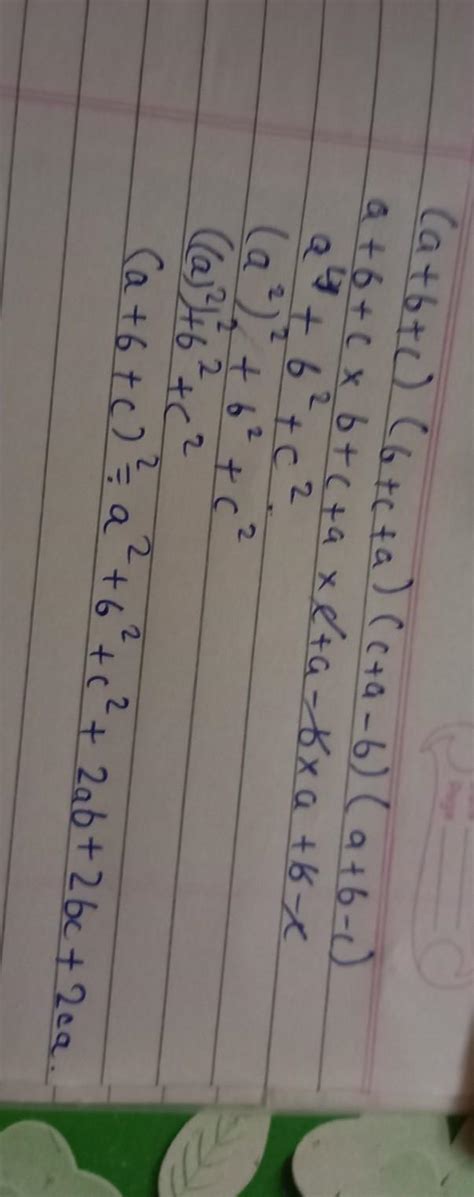 (a+b+c) (b+c+a) (c+a-b) (a+b-c)
a+b+c × b+c+a × c+a-b × a+b-c
a⁴ + b² + c²
(a²)² + b² + c²
((a)²)² + b² + c²
(a+b+c)² = a² + b² + c² + 2ab + 2bc + 2ca.